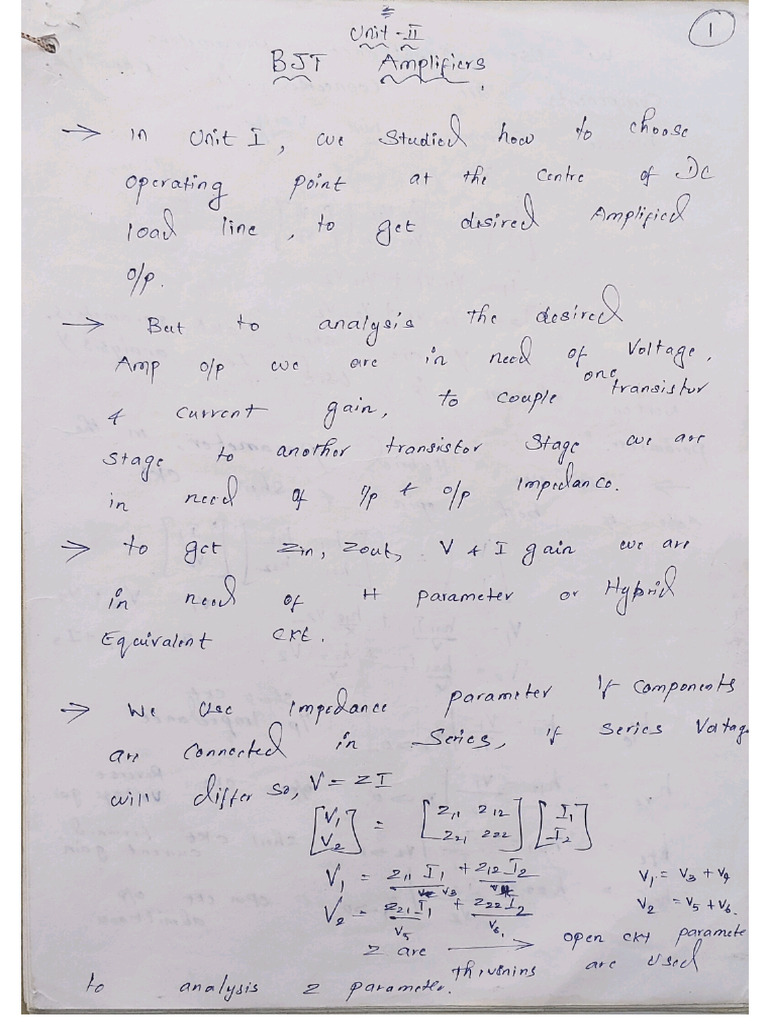 1
Unit - II
BJT Amplifiers.
→ In Unit I, we studied how to choose
operating point at the centre of DC
load line, to get desired Amplified
o/p.
→ But to analysis the desired
Amp o/p we are in need of Voltage,
& current gain, to couple one transistor
stage to another transistor stage we are
in need of i/p & o/p impedance.
→ to get Zin, Zout, V & I gain we are
in need of H parameter or Hybrid
Equivalent ckt.
→ We use impedance parameter if components
are connected in series, if series Voltage
will differ so, V = ZI
[V1 V2] = [Z11 Z12 Z21 Z22] [I1 I2]
V1 = Z11 I1 + Z12 I2 V1 = V3 + V4
V3 V4
V2 = Z21 I1 + Z22 I2 V2 = V5 + V6.
V5 V6
Z are → open ckt paramete
thivenins are used
to analysis Z parameter.